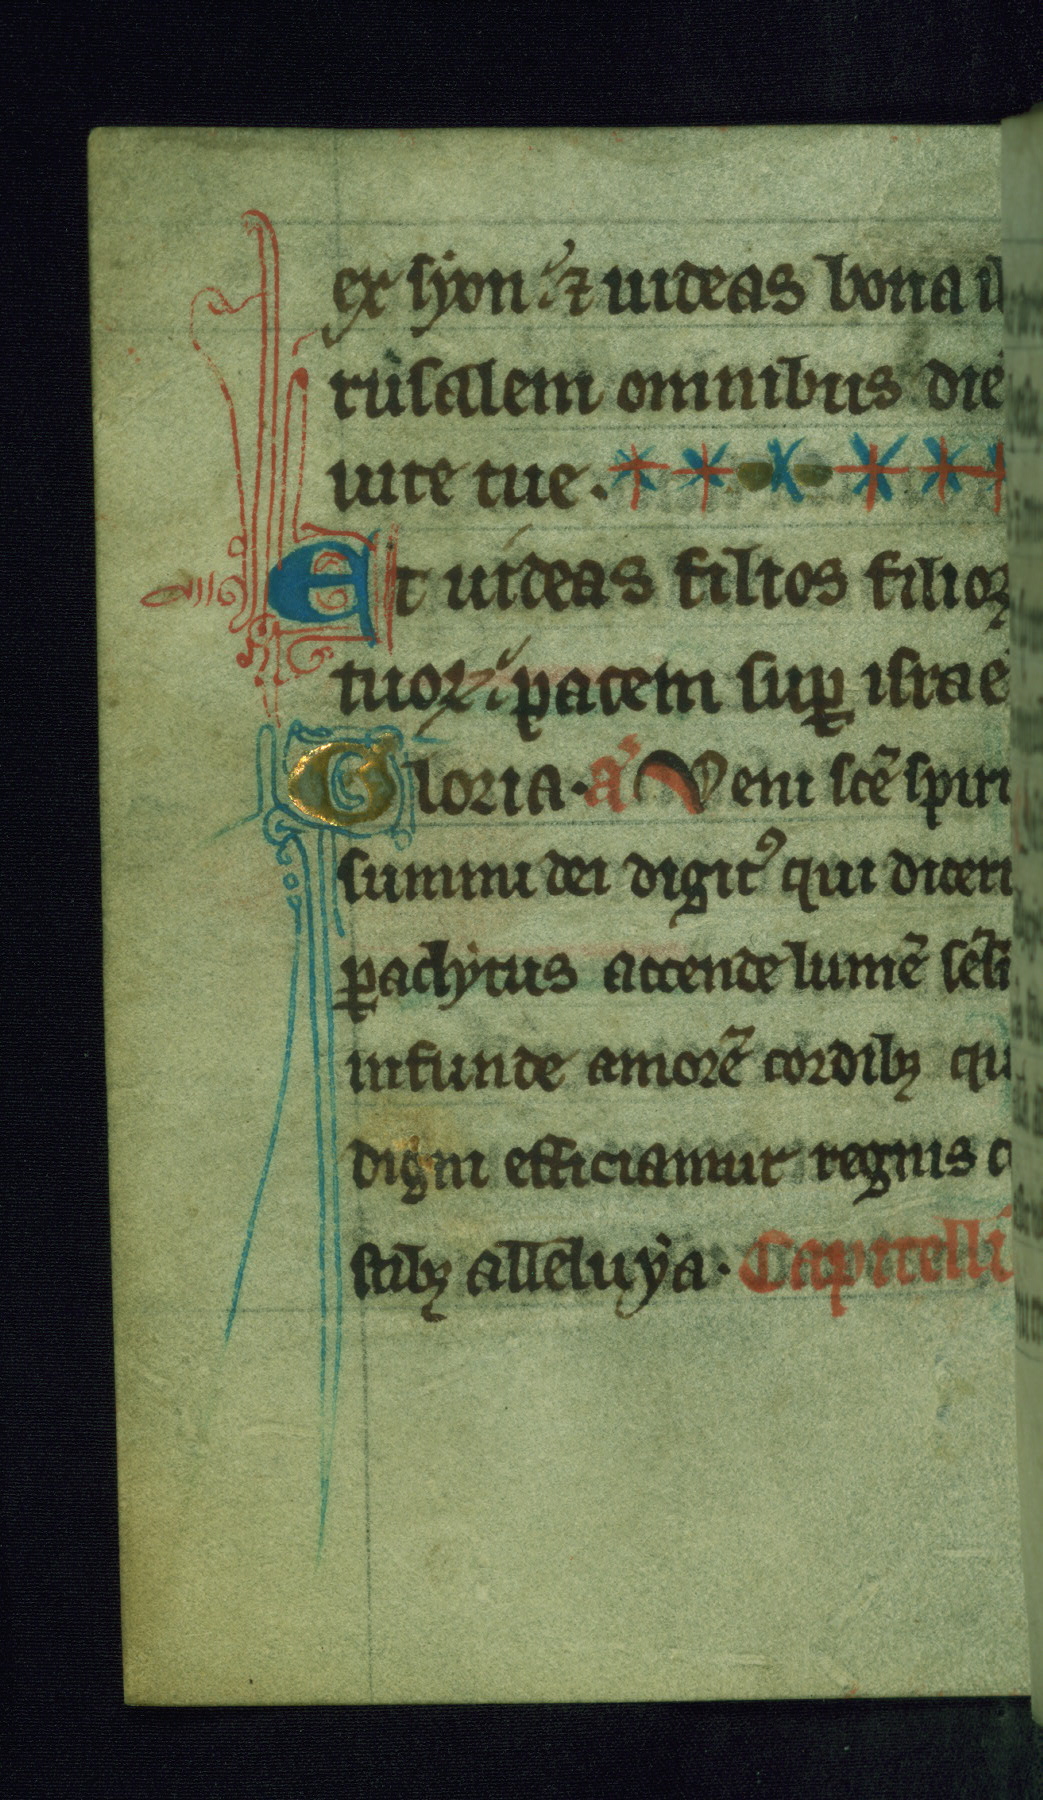 ex syon ⁊ uideas bona ih
rusalem omnibus die
uite tue.
Et uideas filios filioꝝ
tuoꝝ pacem suꝑ israe
Gloria. a' Veni sc̄e spiri
summi dei digitꝰ qui diceri
ꝑaclytus accende lumē sēsi
infunde amorē cordibꝫ qu
digni efficiamur regnis c
stibꝫ alleluya. Capitelli